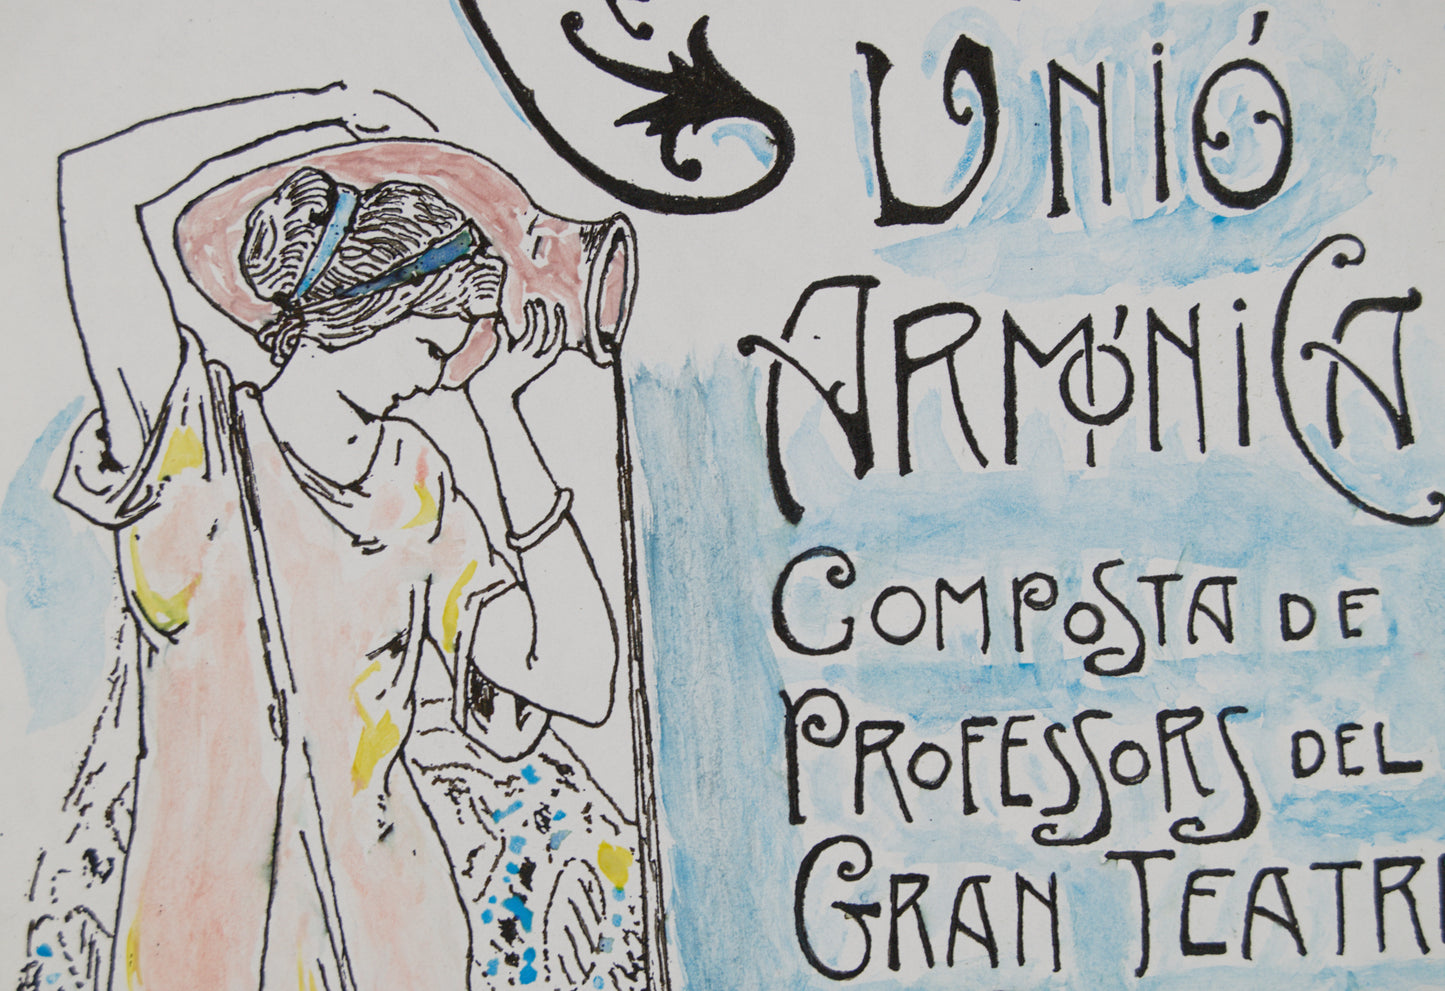 Unió
Armónica
Composta de
Professors del
Gran Teatre